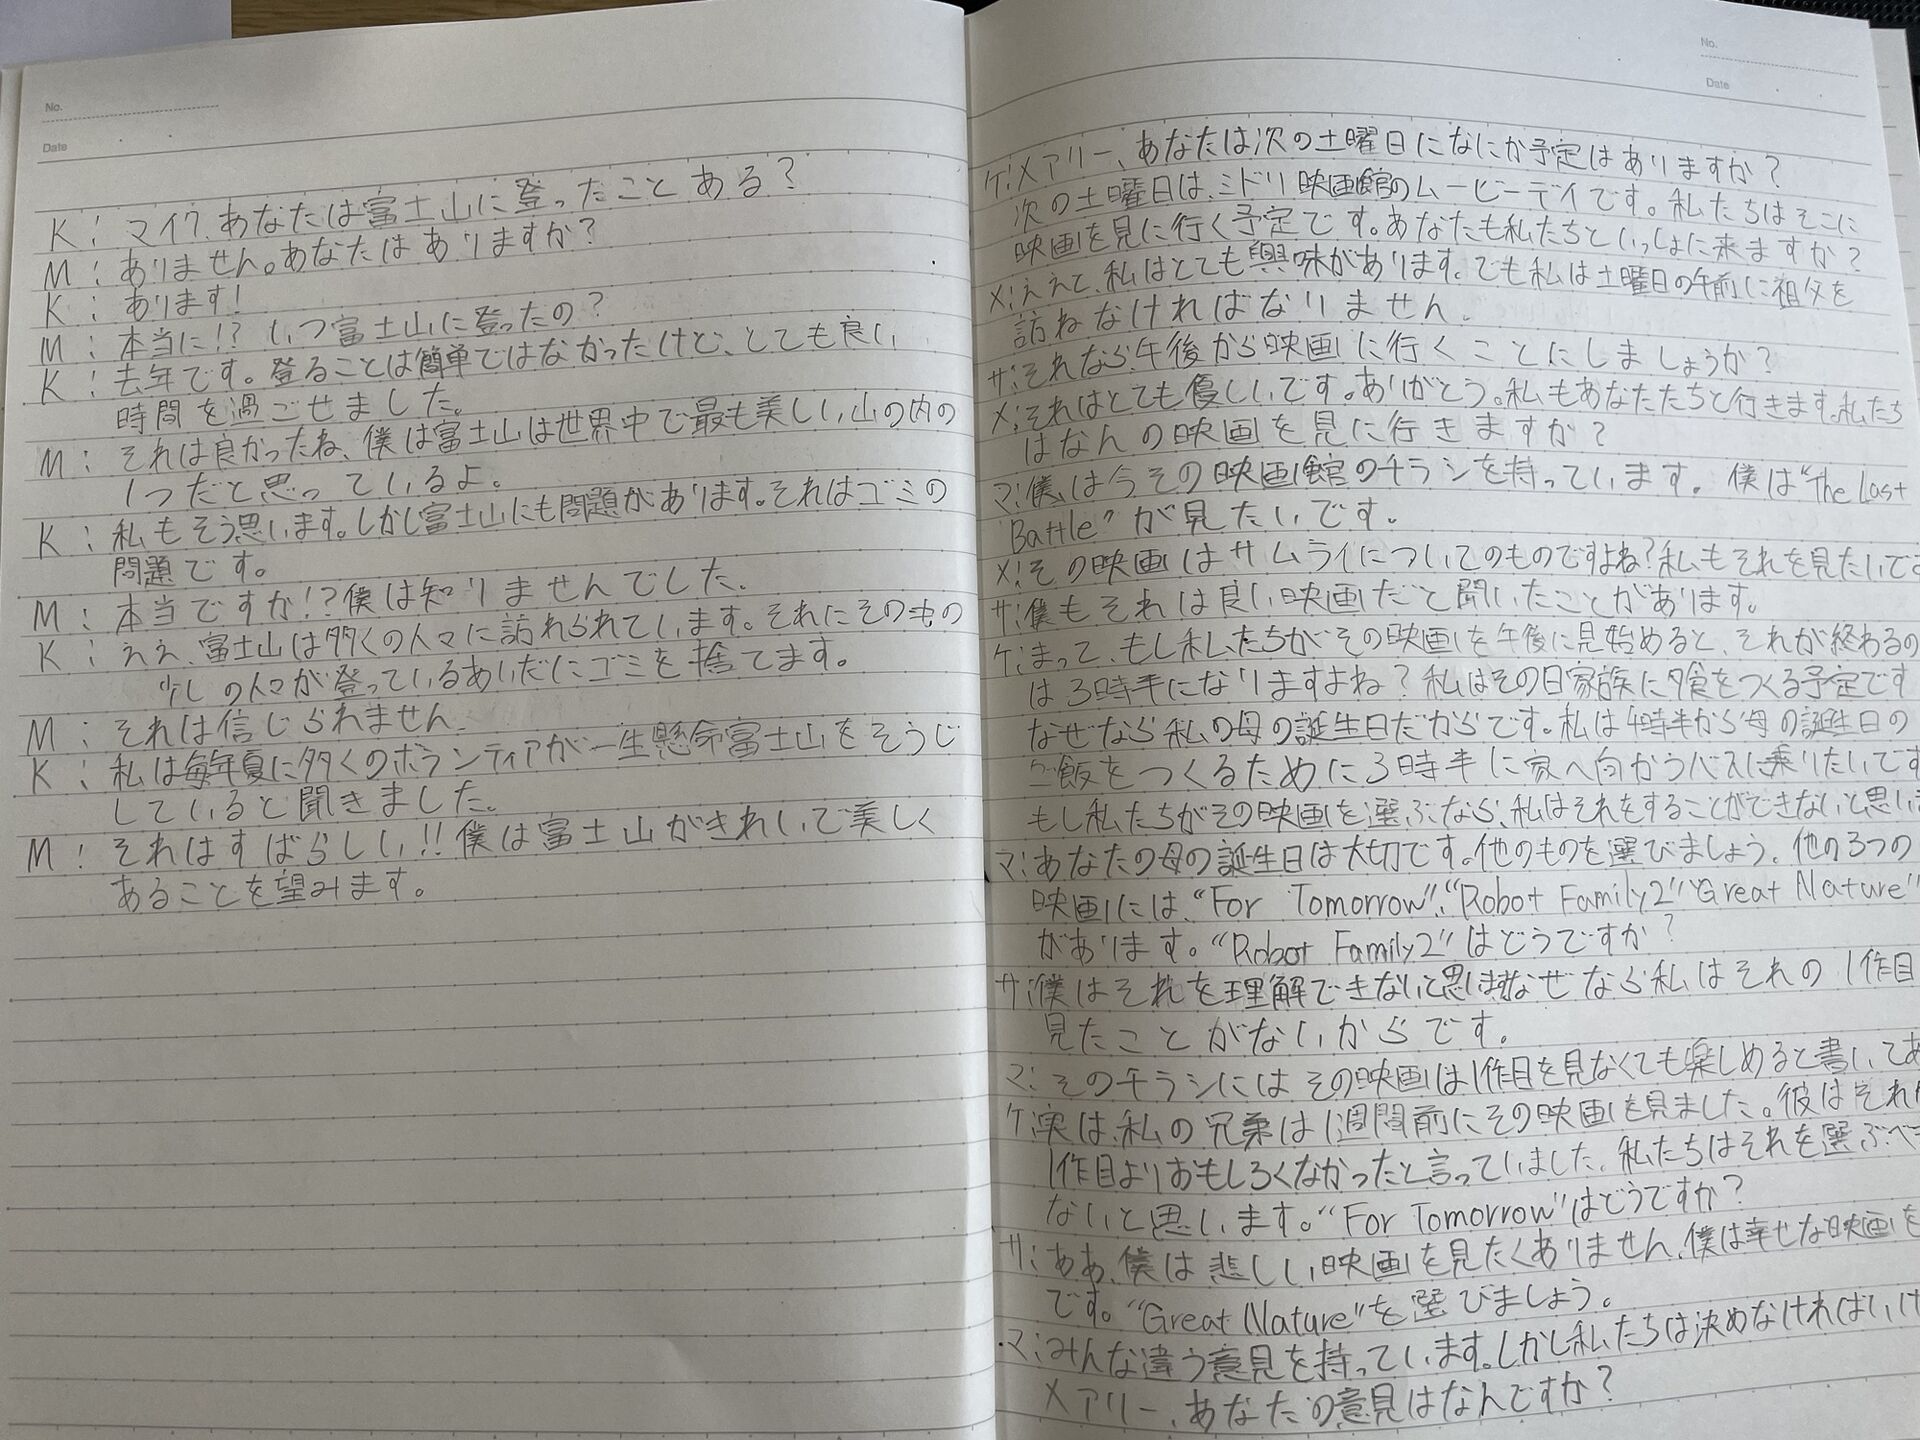 No.
Date
K: マイク、あなたは富士山に登ったことある?
M: ありません。あなたはありますか?
K: あります!
M: 本当に!? いつ富士山に登ったの?
K: 去年です。登ることは簡単ではなかったけど、とても良い
時間を過ごせました。
M: それは良かったね、僕は富士山は世界中で最も美しい山の内の
1つだと思っているよ。
K: 私もそう思います。しかし富士山にも問題があります。それはゴミの
問題です。
M: 本当ですか!?僕は知りませんでした。
K: ええ、富士山は多くの人々に訪れられています。それにそのもの
少しの人々が登っているあいだにゴミを捨てます。
M: それは信じられません。
K: 私は毎年夏に多くのボランティアが一生懸命富士山をそうじ
していると聞きました。
M: それはすばらしい!!僕は富士山がきれいで美しく
あることを望みます。
No.
Date
ケ:メアリー、あなたは次の土曜日になにか予定はありますか?
次の土曜日は、ミドリ映画館のムービーデイです。私たちはそこに
映画を見に行く予定です。あなたも私たちといっしょに来ますか?
メ:ええと、私はとても興味があります。でも私は土曜日の午前に祖父を
訪ねなければなりません。
サ:それなら午後から映画に行くことにしましょうか?
メ:それはとても優しいです。ありがとう。私もあなたたちと行きます。私たち
はなんの映画を見に行きますか?
マ:僕は今その映画館のチラシを持っています。僕は"The Last
Battle"が見たいです。
メ:その映画はサムライについてのものですよね?私もそれを見たいです
サ:僕もそれは良い映画だと聞いたことがあります。
ケ:まって、もし私たちがその映画を午後に見始めると、それが終わるの
は3時半になりますよね?私はその日家族に夕食をつくる予定です
なぜなら私の母の誕生日だからです。私は4時半から母の誕生日の
ご飯をつくるために3時半に家へ向かうバスに乗りたいです
もし私たちがその映画を選ぶなら、私はそれをすることができないと思い
マ:あなたの母の誕生日は大切です。他のものを選びましょう。他の3つの
映画には、"For Tomorrow"、"Robot Family2""Great Nature"
があります。"Robot Family2"はどうですか?
サ:僕はそれを理解できないと思いますなぜなら私はそれの1作目
見たことがないからです。
マ:そのチラシにはその映画は1作目を見なくても楽しめると書いてあ
ケ:実は、私の兄弟は1週間前にその映画を見ました。彼はそれ
1作目よりおもしろくなかったと言っていました。私たちはそれを選ぶべ
ないと思います。"For Tomorrow"はどうですか?
サ:ああ、僕は悲しい映画を見たくありません、僕は幸せな映画を
です。"Great Nature"を選びましょう。
マ:みんな違う意見を持っています。しかし私たちは決めなければいけ
メアリー、あなたの意見はなんですか?